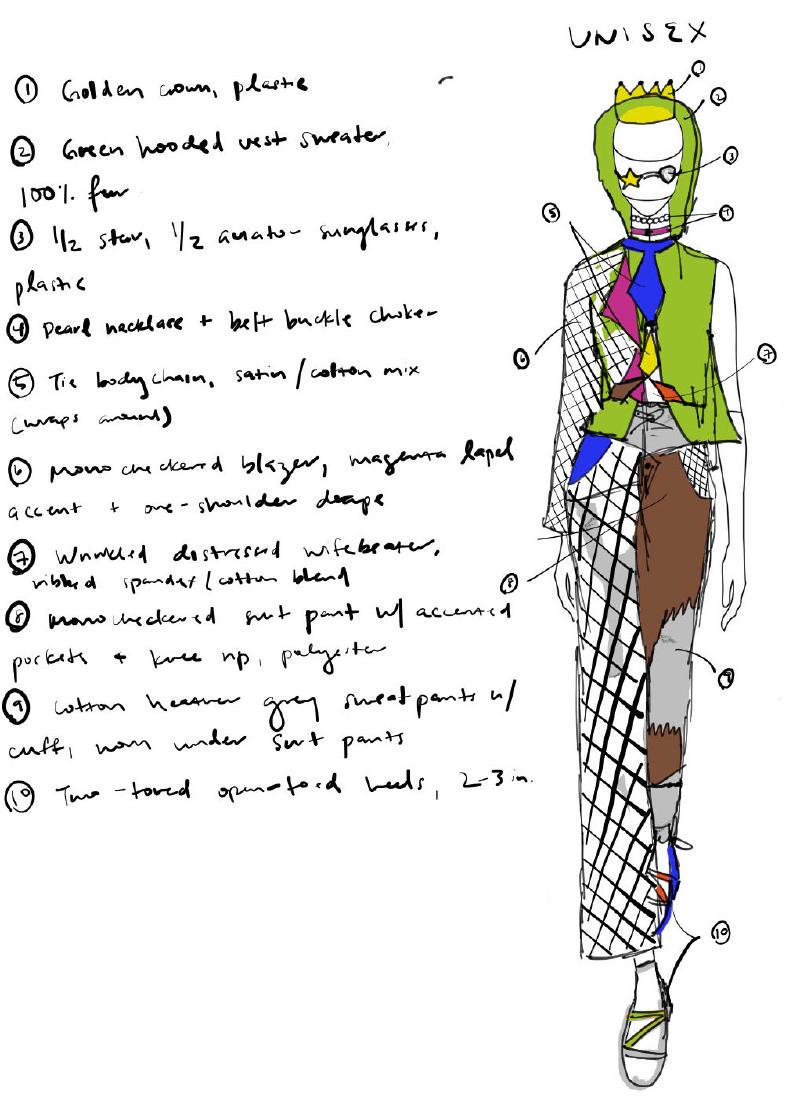 UNISEX
① Golden crown, plastic
② Green hooded vest sweater,
100% fur
③ 1/2 star, 1/2 aviator sunglasses,
plastic
④ Pearl necklace + belt buckle choker
⑤ Tie bodychain, satin/cotton mix
(wraps around)
⑥ Mono checkered blazer, magenta lapel
accent + one-shoulder drape
⑦ Wrinkled distressed wifebeater,
ribbed spandex/cotton blend
⑧ Monocheckered suit pant w/ accented
pockets + knee rip, polyester
⑨ Cotton heather grey sweatpants w/
cuff, worn under suit pants
⑩ Two-toned open-toed heels, 2-3 in.
①
②
③
④
⑤
⑥
⑦
⑧
⑨
⑩